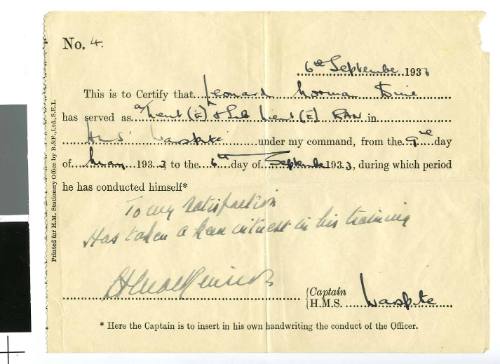 No. 4.
6th September 1933
This is to Certify that Leonard Norman
has served as a/Lieut (E) & Sub Lieut (E) RAN in
HMS Warspite under my command, from the 9th day
of May 1933 to the 6th day of September 1933, during which period
he has conducted himself*
To my satisfaction
Has taken a keen interest in his training
Captain
H.M.S. Warspite
* Here the Captain is to insert in his own handwriting the conduct of the Officer.
Printed for H.M. Stationery Office by B.&P., Ltd., S.E.1.